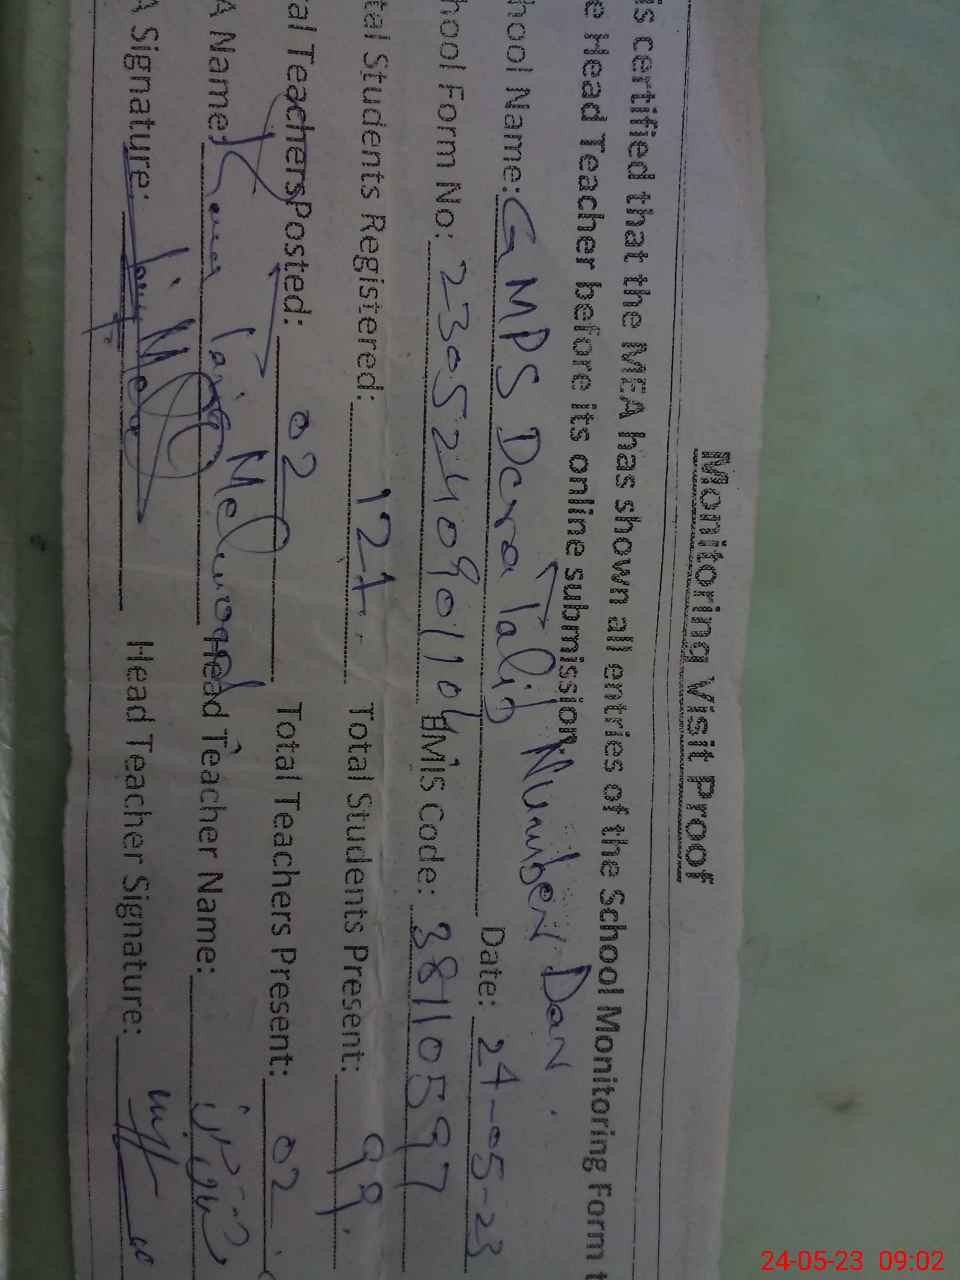 Monitoring Visit Proof
is certified that the MEA has shown all entries of the School Monitoring Form t
e Head Teacher before its online submission. Number Dar
hool Name: GMPS Dera Talib Date: 24-05-23
hool Form No: 230524090110 EMIS Code: 38110597
tal Students Registered: 127 Total Students Present: 99
al Teachers Posted: 02 Total Teachers Present: 02
A Name: Tariq Mehmood Head Teacher Name:
A Signature: Head Teacher Signature:
24-05-23 09:02